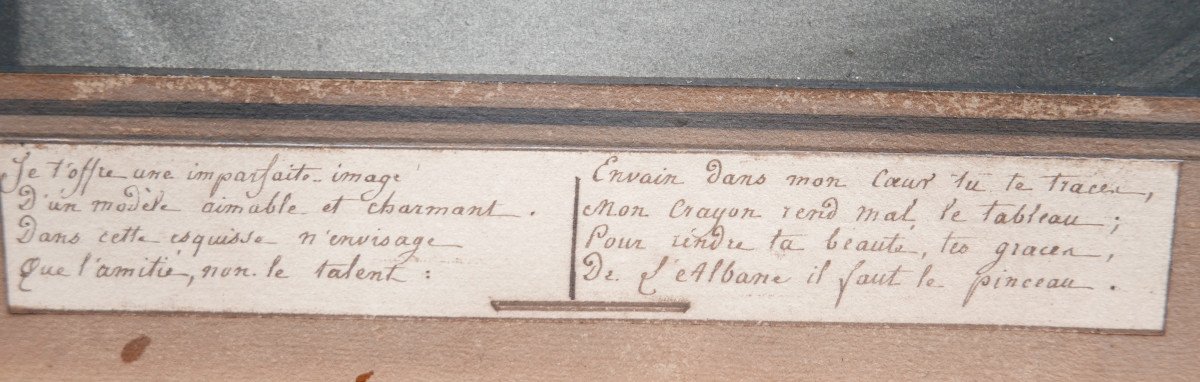 Je t'offre une imparfaite image
D'un modèle aimable et charmant.
Dans cette esquisse n'envisage
Que l'amitié, non le talent :
Envain dans mon Cœur tu te traces,
Mon Crayon rend mal le tableau ;
Pour rendre ta beauté, tes graces,
De l'Albane il faut le pinceau.